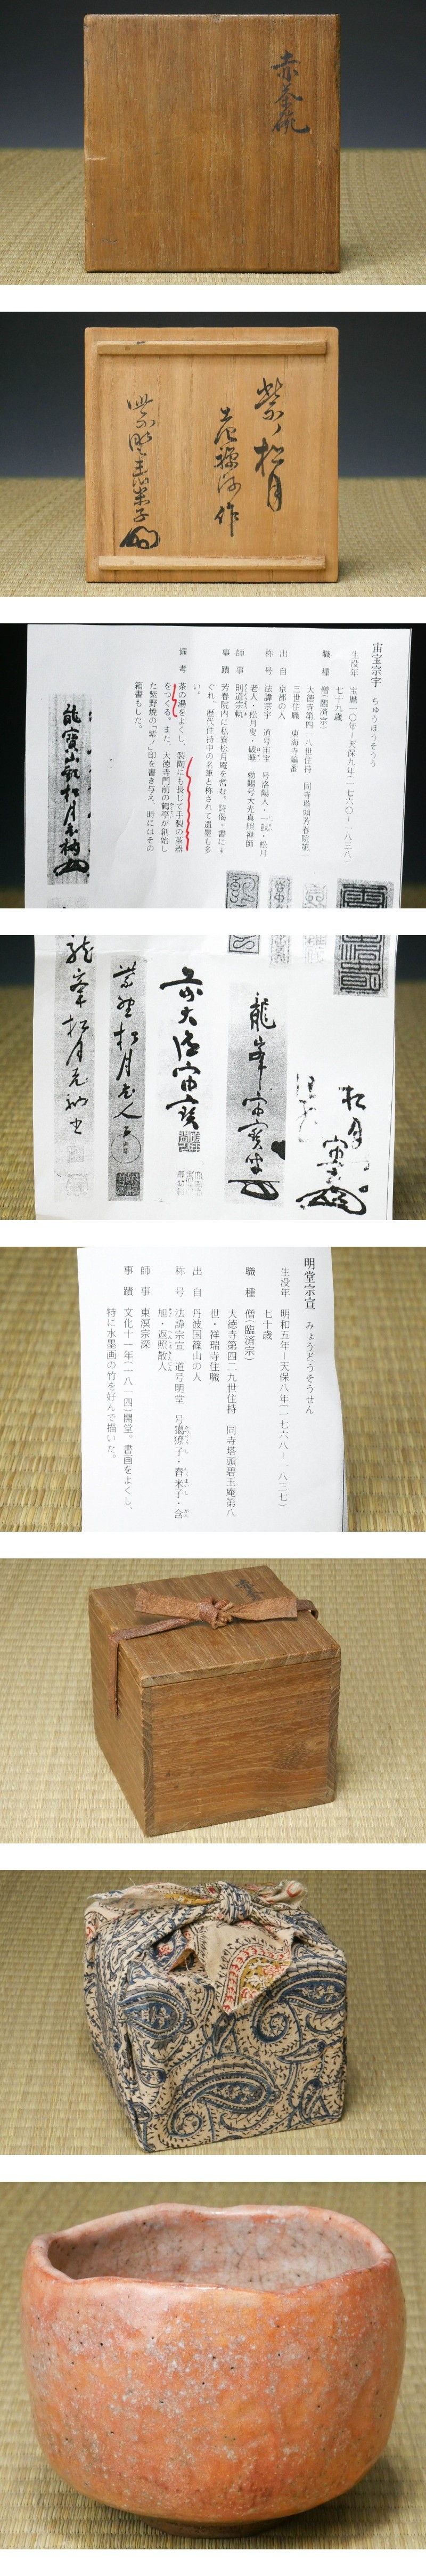 赤茶碗
紫ノ松月
宙宝宗宇 ちゅうほうそうう
生没年 宝暦一〇年―天保九年(一七六〇―一八三八)
七十九歳
職種 僧(臨済宗)
大徳寺第四一八世住持 同寺塔頭芳春院第一
三世住職 東海寺輪番
出自 京都の人
称号 法諱宗宇 道号宙宝 号洛陽人・一
老人・松月叟・破睡 勅賜号大光真照禅師
師事 則道宗軌
事蹟 芳春院内に私寮松月庵を営む。詩偈・書にす
ぐれ、歴代住持中の名筆と称されて遺墨も多
い。
備考 茶の湯をよくし、製陶にも長じて手製の茶器
をつくる。また、大徳寺門前の鶴亭が創始し
た紫野焼の「紫」印を書き与え、時にはその
箱書もした。
龍宝山 松月老衲
松月
宙宝
龍峯宙宝書
前大徳宙寳
紫野松月老人
龍峯松月老衲書
明堂宗宣 みょうどうそうせん
生没年 明和五年―天保八年(一七六八―一八三七)
七十歳
職種 僧(臨済宗)
大徳寺第四二九世住持 同寺塔頭碧玉庵第八
世・祥瑞寺住職
出自 丹波国篠山の人
称号 法諱宗宣 道号明堂 号獦獠子・舂米子・含
旭・返照散人
師事 東溟宗深
事蹟 文化十一年(一八一四)開堂。書画をよくし、
特に水墨画の竹を好んで描いた。